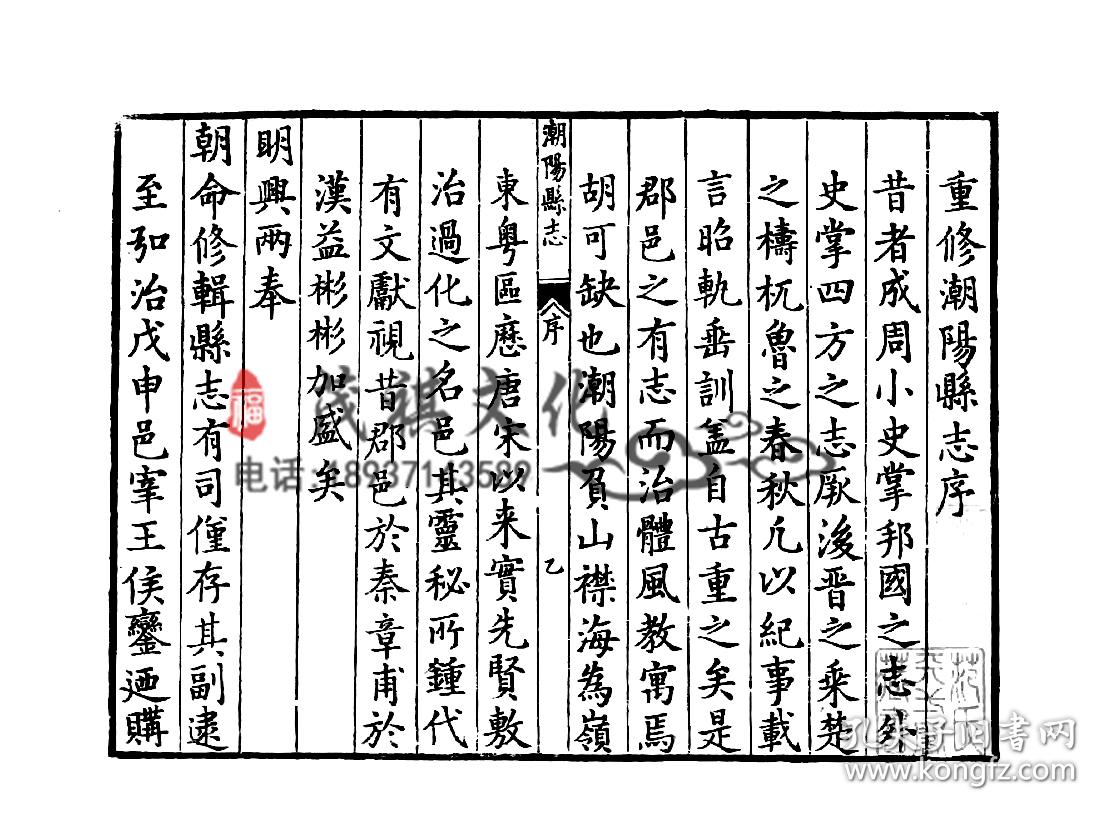 重修潮陽縣志序
昔者成周小史掌邦國之志外
史掌四方之志厥後晋之乘楚
之檮杌魯之春秋凢以紀事載
言昭軌垂訓盖自古重之矣是
郡邑之有志而治體風教寓焉
胡可缺也潮陽負山襟海為嶺
潮陽縣志
序
乙
東粤區歷唐宋以来實先賢敷
治過化之名邑其靈秘所鍾代
有文獻視昔郡邑於秦章甫於
漢益彬彬加盛矣
明興兩奉
朝命修輯縣志有司僅存其副逮
至弘治戊申邑宰王侯鑾迺購
福
祺文化
电话:
孔夫子旧书网
www.kongfz.com